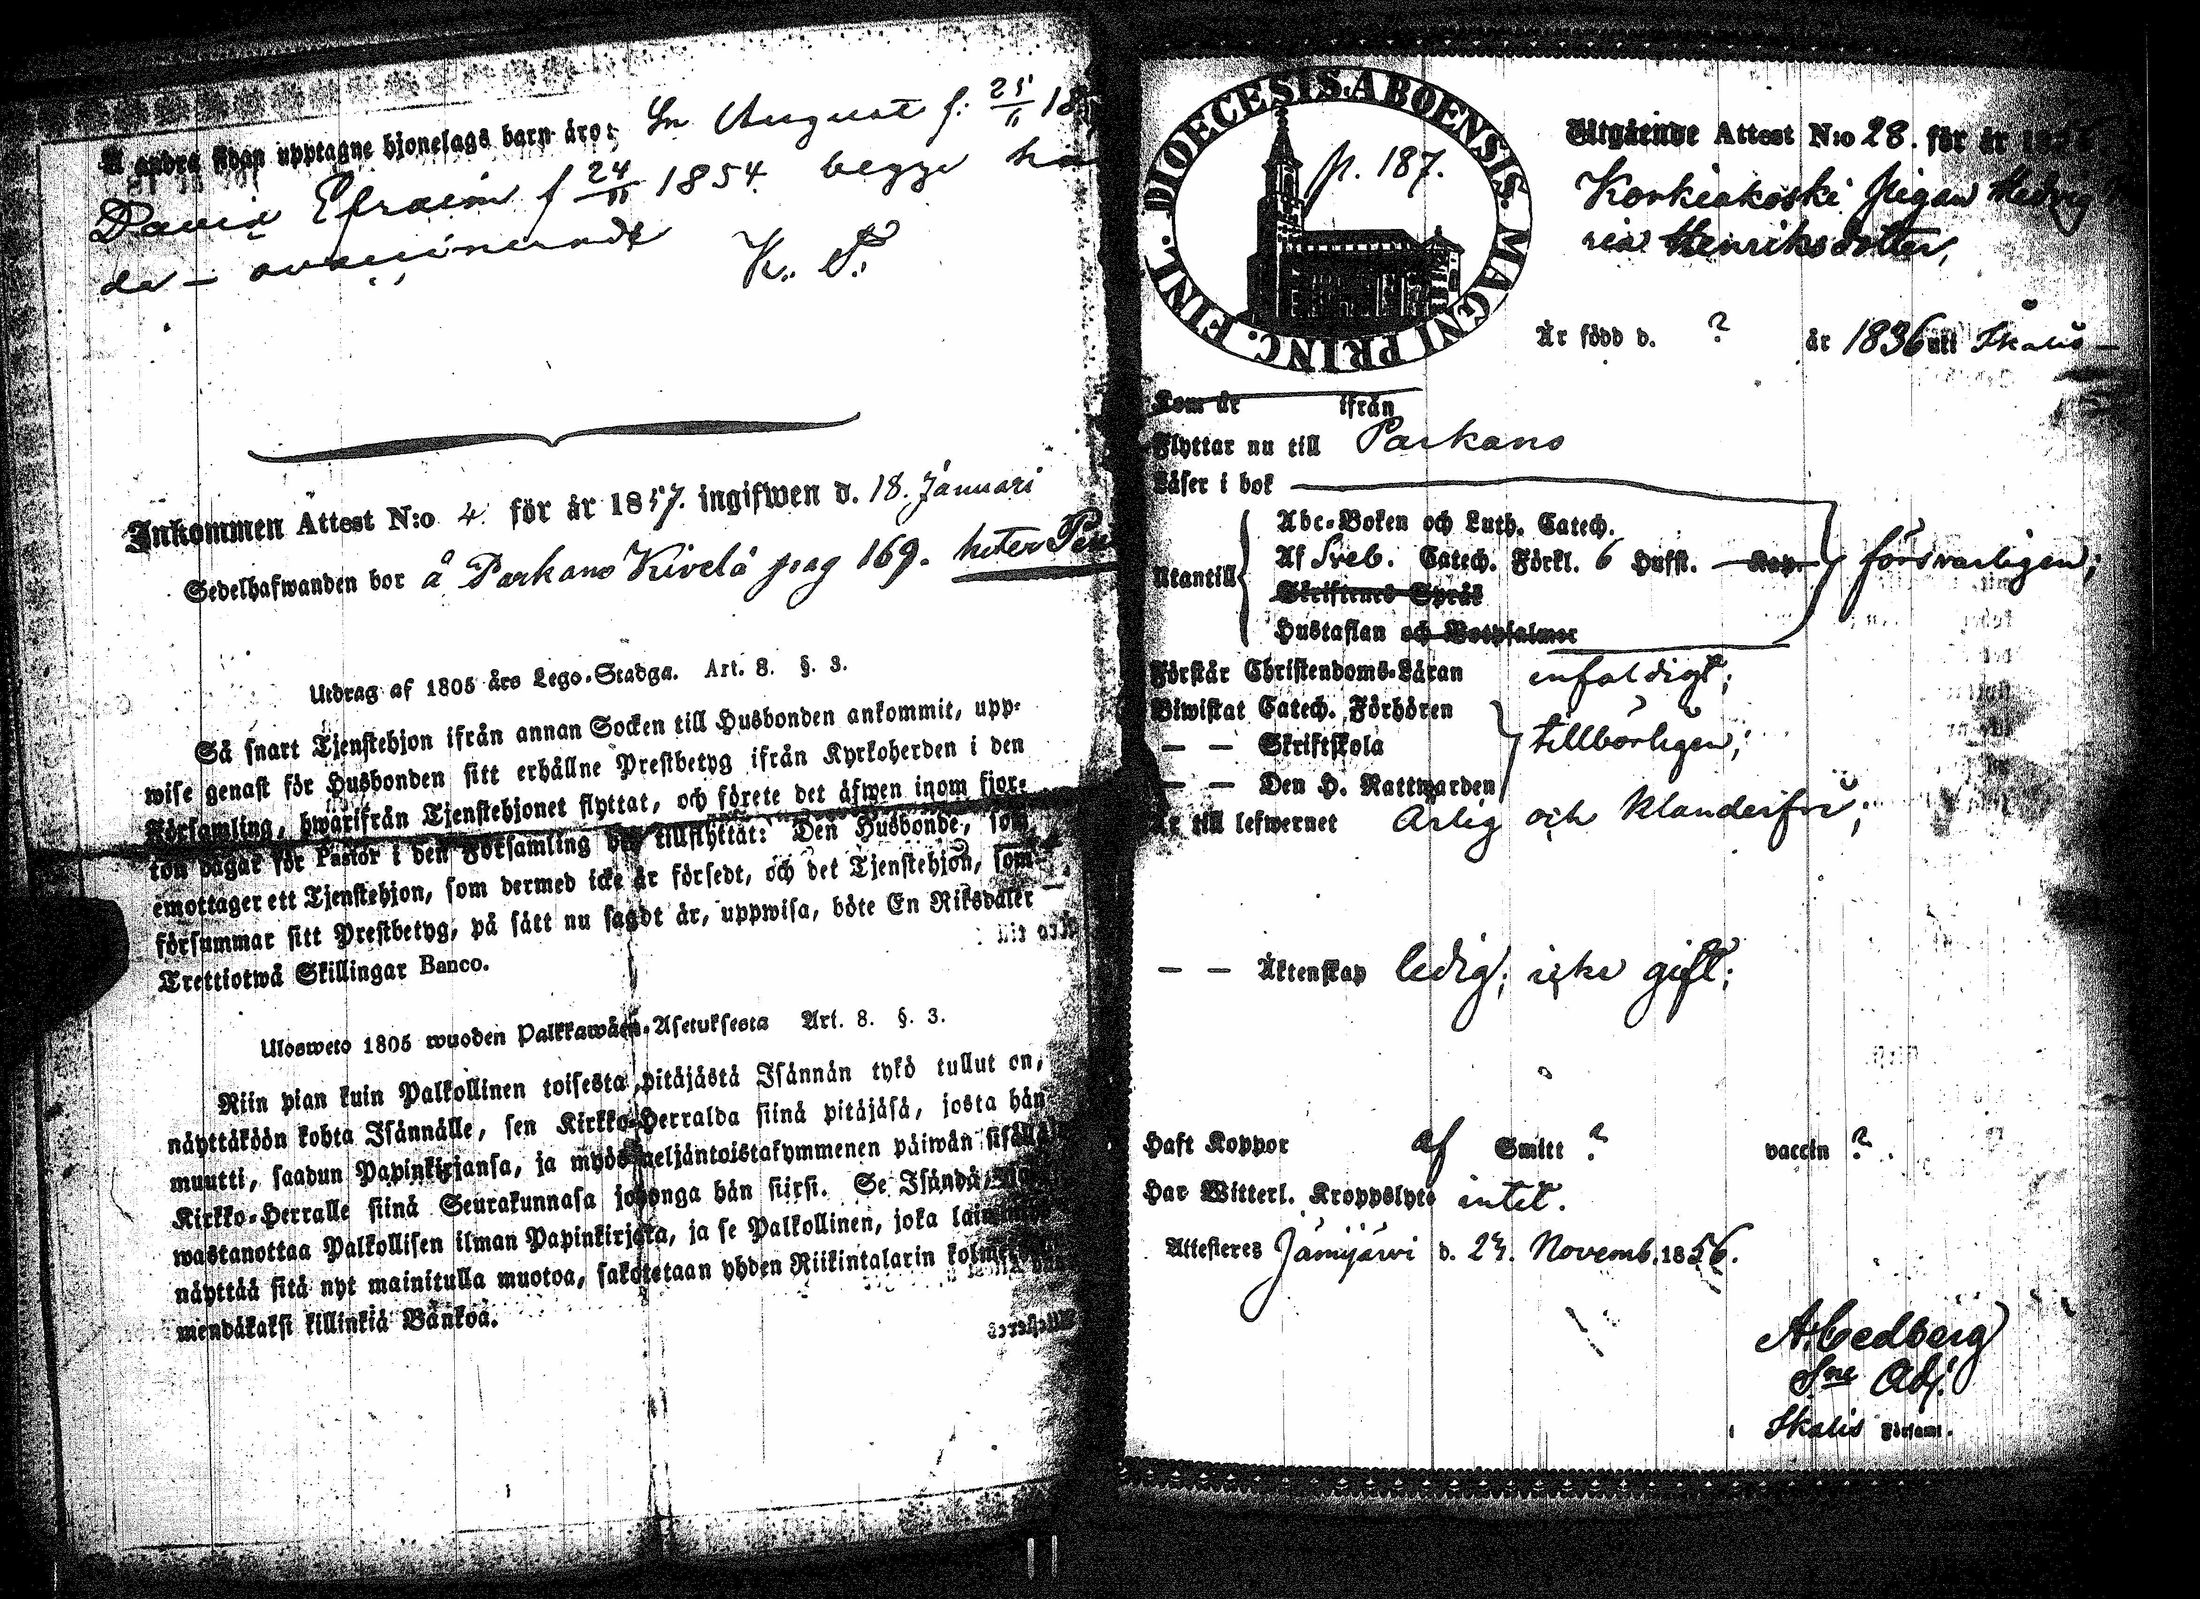 Å andra sidan upptagne hjonelags barn äro: Sn August f. 25/11 18
David Efraim f 24/11 1854 begge
da — ovaccinerade K. F.
Inkommen Attest N:o 4. för år 1857. ingifwen d. 18. Januari
Sedelhafwanden bor å Parkano Kivelä pag 169. heter
Utdrag af 1805 års Lego-Stadga. Art. 8. §. 3.
Så snart Tjenstehjon ifrån annan Socken till Husbonden ankommit, upp-
wise genast för Husbonden sitt erhållne Prestbetyg ifrån Kyrkoherden i den
Församling, hwarifrån Tjenstehjonet flyttat, och förete det äfwen inom fjor-
ton dagar för Pastor i den Församling det tillflyttat: Den Husbonde, som
emottager ett Tjenstehjon, som dermed icke är försedt, och det Tjenstehjon, som
försummar sitt Prestbetyg, på sätt nu sagdt är, uppwisa, böte En Riksdaler
Trettiotwå Skillingar Banco.
Ulosweto 1805 wuoden Palkkawäen-Asetuksesta Art. 8. §. 3.
Niin pian kuin Palkollinen toisesta pitäjästä Isännän tykö tullut on,
näyttäköön kohta Isännälle, sen Kirkko-Herralda siinä pitäjäsä, josta hän
muutti, saadun Papinkirjansa, ja myös neljäntoistakymmenen päiwän sisällä
Kirkko-Herralle siinä Seurakunnasa johonga hän siirsi. Se Isändä, joka
wastanottaa Palkollisen ilman Papinkirjata, ja se Palkollinen, joka laiminlyö
näyttää sitä nyt mainitulla muotoa, sakotetaan yhden Riikintalarin kolme
mendäkaksi killinkiä Bankoa.
DIOECESIS. ABOENSIS. MAGNI PRINC. FINL.
p. 187.
Utgående Attest N:o 28. för år 18
Korkiakoski pigan Hedvig
ria Henriksdotter,
Är född d. ? år 1836 uti Ikalis —
Kom år ifrån
Flyttar nu till Parkano
Läser i bok
Abc-Boken och Luth. Catech.
Utantill Af Sveb. Catech. Förkl. 6 Hufst. Kap. försvarligen;
Skriftenes Språk
Hustaflan och Botpsalmer
Förstår Christendoms-Läran enfaldigt;
Biwistat Catech. Förhören
— — Skriftskola tillbörligen;
— — Den H. Nattwarden
Är till lefwernet Ärlig och klanderfri;
— — Äktenskap ledig; icke gift;
Haft Koppor af Smitt ? vaccin ?
Har Witterl. Kroppslyte intet.
Attesteres Jämijärvi d. 23. Novemb. 1856.
A. Cedberg
Sne Adj.
Ikalis Församl.